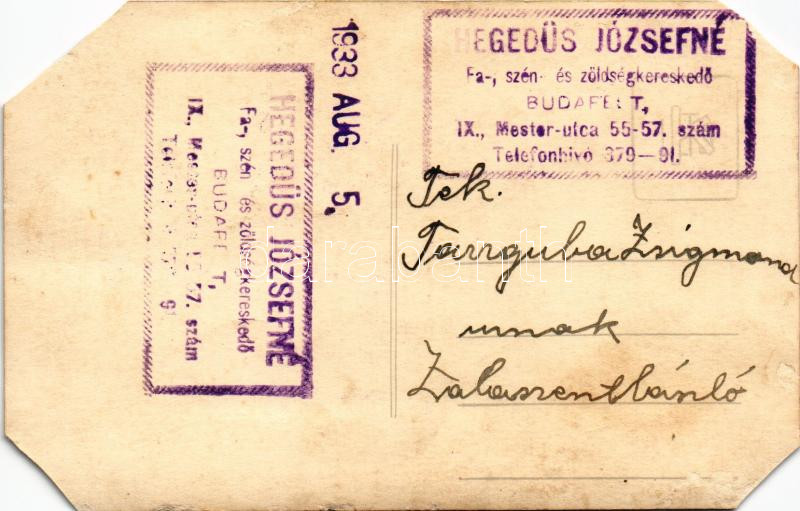 HEGEDÜS JÓZSEFNÉ
Fa-, szén- és zöldségkereskedő
BUDAPEST,
IX., Mester-utca 55-57. szám
Telefonhivó 379—91.
1933 AUG. 5,
HEGEDÜS JÓZSEFNÉ
Fa-, szén- és zöldségkereskedő
BUDAPEST,
IX., Mester-utca 57. szám
91
Tek.
Tarrguba Zsigmond
urnak
Zalaszentlászló
darabanth